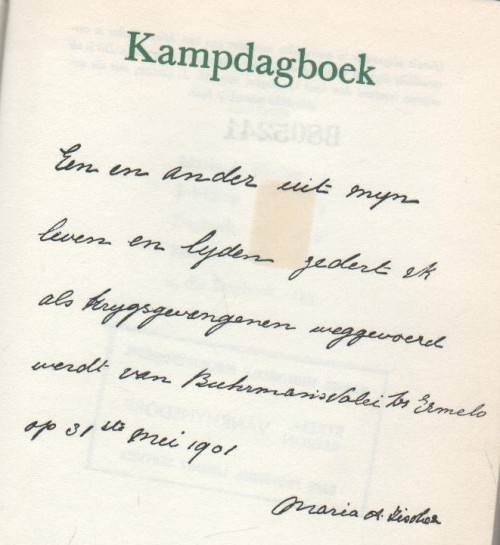 Kampdagboek
Een en ander uit myn
leven en lyden zedert ik
als krygsgevangenen weggevoerd
werdt van Buhrmansvalei, tot Ermelo
op 31ste Mei 1901
Maria A. Fischer
B805241